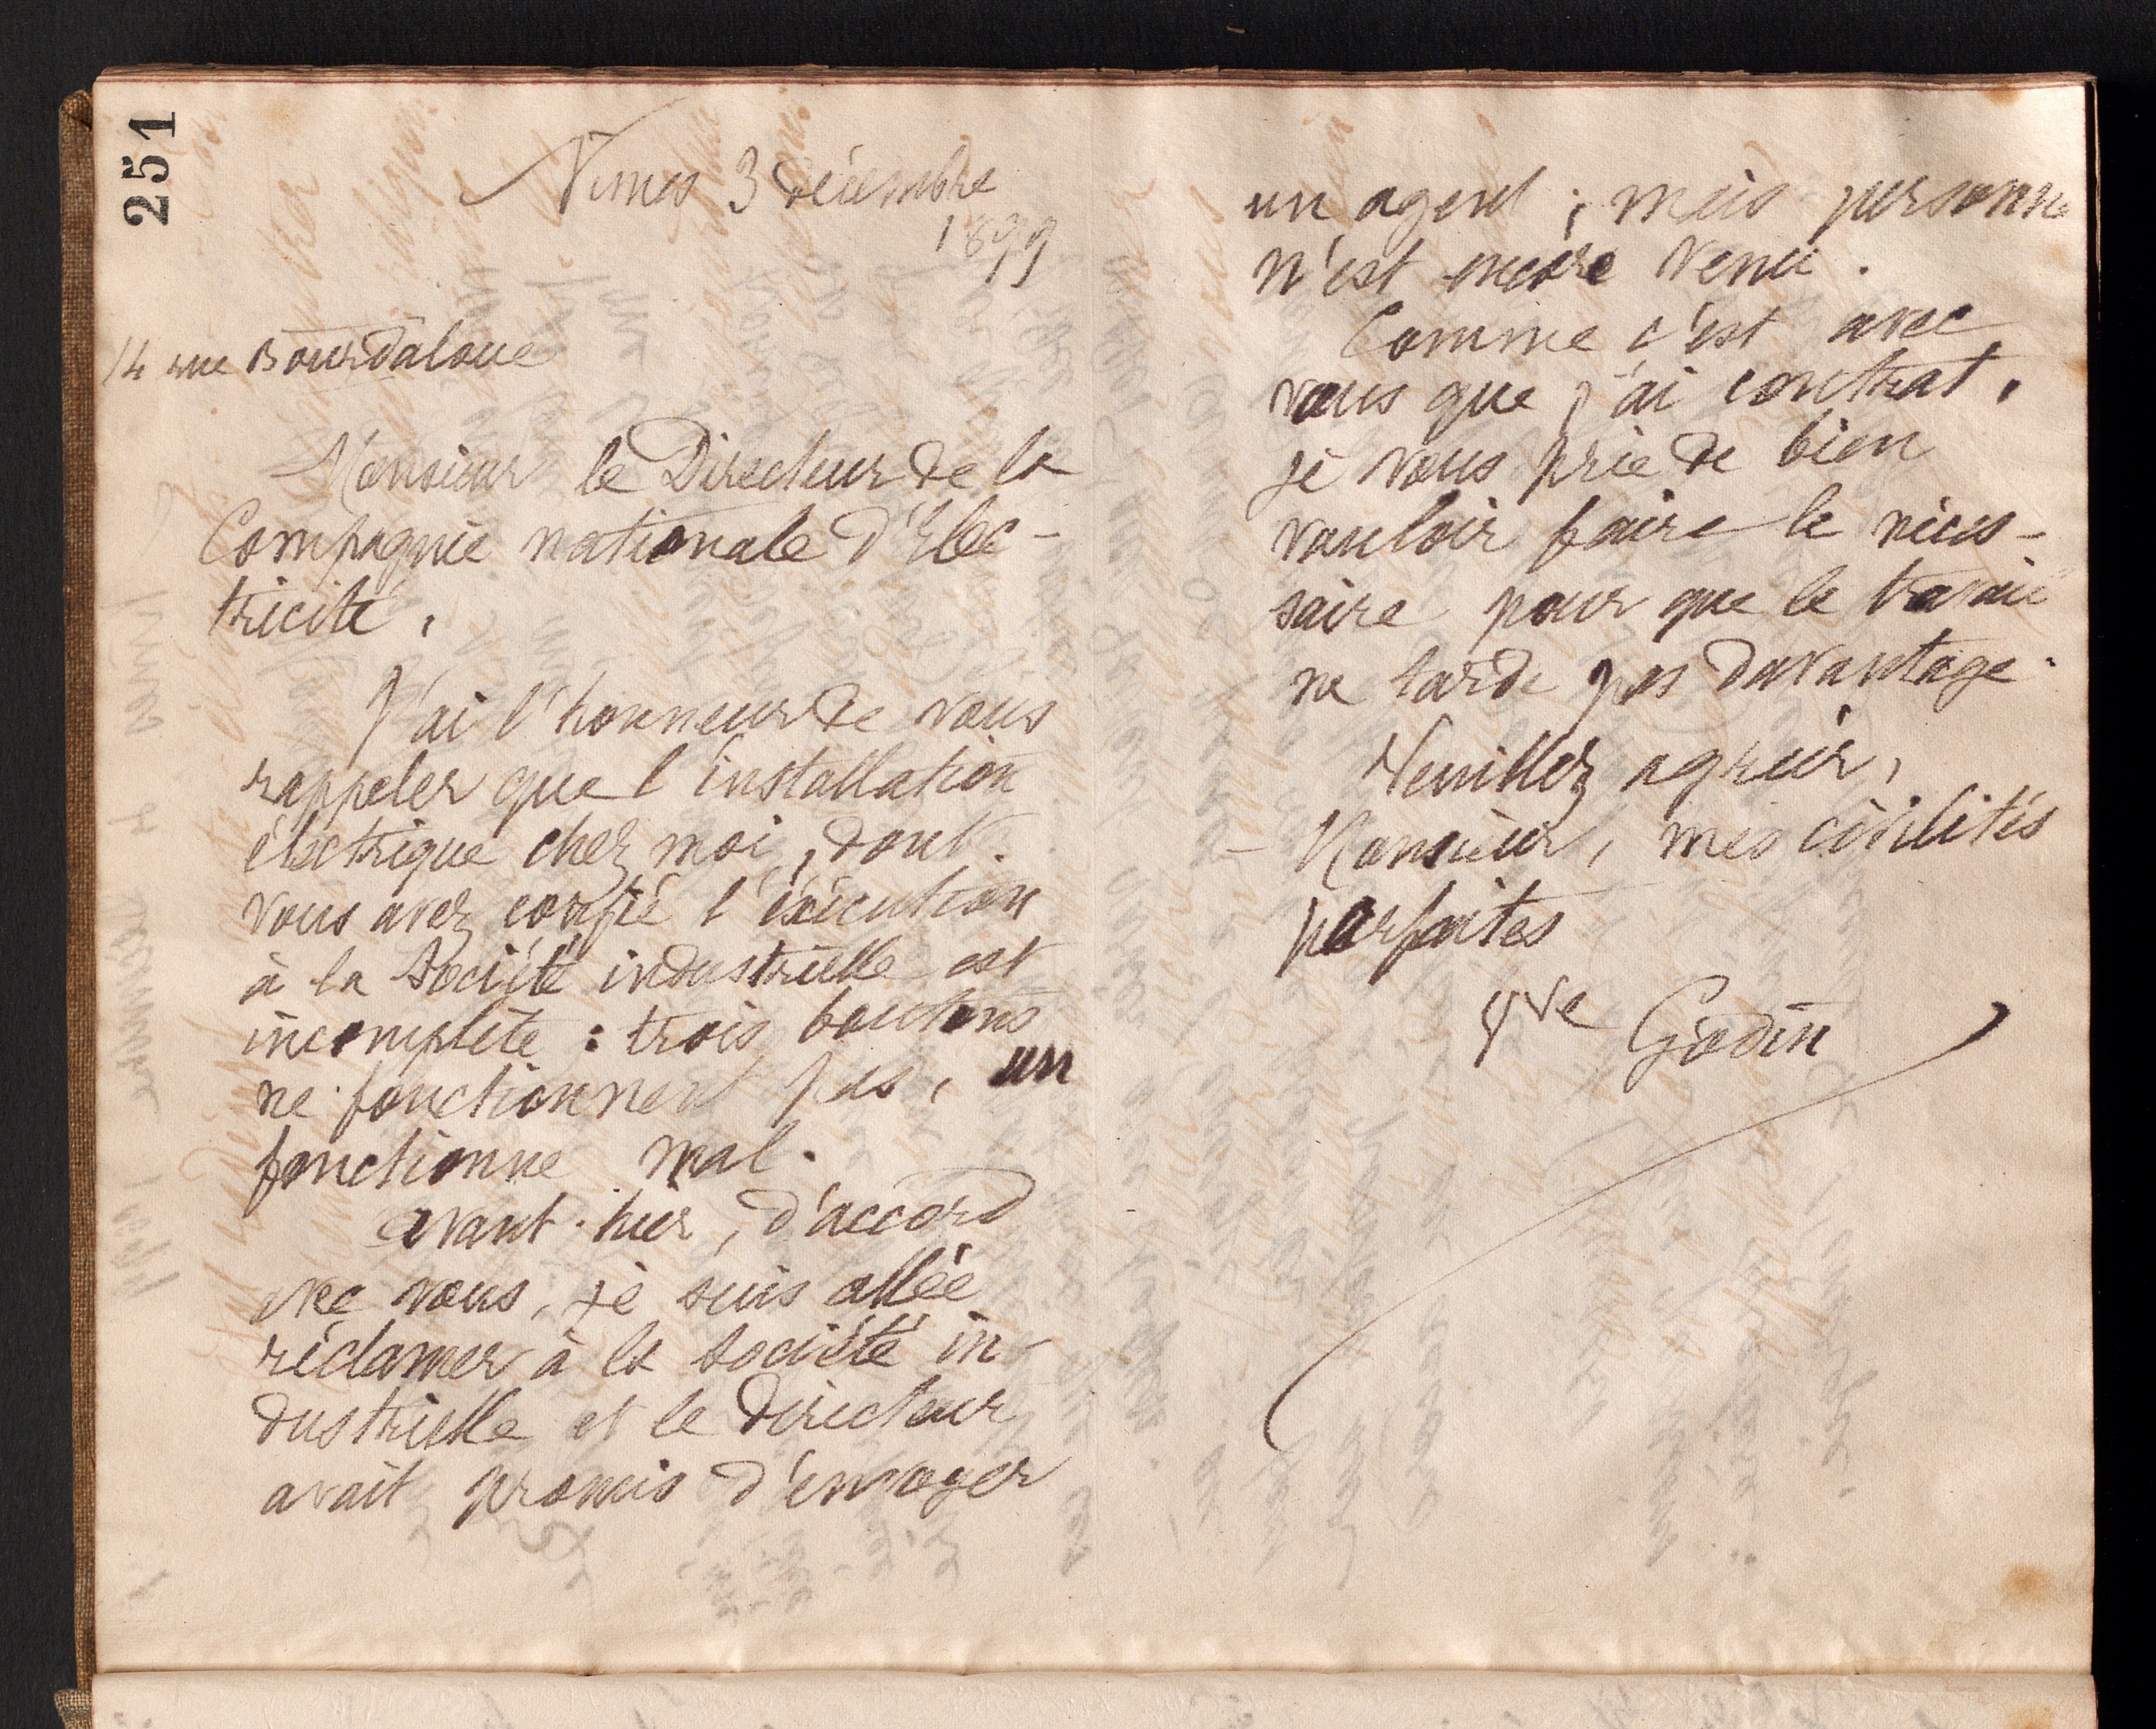 251
Nimes 3 décembre
1899
14 rue Bourdaloue
Monsieur le Directeur de la
Compagnie nationale d'Elec-
tricité,
J'ai l'honneur de vous
rappeler que l'installation
électrique chez moi, dont
vous avez confié l'exécution
à la Société industrielle est
incomplète : trois boutons
ne fonctionnent pas, un
fonctionne mal.
avant-hier, d'accord
avec vous, je suis allée
réclamer à la société in-
dustrielle et le directeur
avait promis d'envoyer
un agent ; mais personne
n'est encore venu.
Comme c'est avec
vous que j'ai contrat,
je vous prie de bien
vouloir faire le néces-
saire pour que le travail
ne tarde pas davantage.
Veuillez agréer,
Monsieur, mes civilités
parfaites
Vve Godin